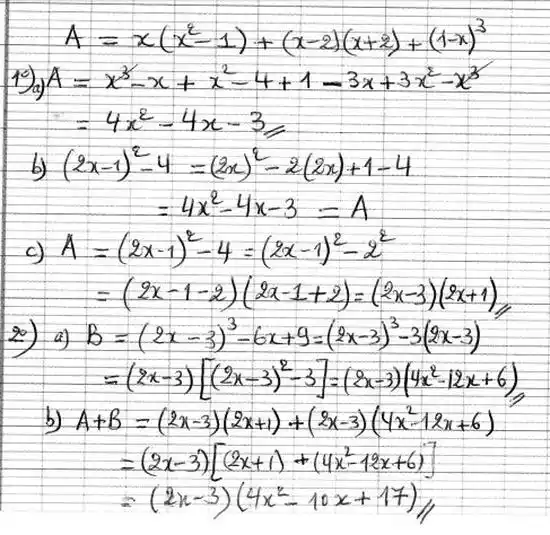 A = x(x²-1) + (x-2)(x+2) + (1-x)³
1°) a) A = x³ - x + x² - 4 + 1 - 3x + 3x² - x³
= 4x² - 4x - 3 //
b) (2x-1)² - 4 = (2x)² - 2(2x) + 1 - 4
= 4x² - 4x - 3 = A
c) A = (2x-1)² - 4 = (2x-1)² - 2²
= (2x-1-2)(2x-1+2) = (2x-3)(2x+1) //
2°) a) B = (2x-3)³ - 6x + 9 = (2x-3)³ - 3(2x-3)
= (2x-3)[(2x-3)² - 3] = (2x-3)(4x² - 12x + 6) //
b) A+B = (2x-3)(2x+1) + (2x-3)(4x² - 12x + 6)
= (2x-3)[(2x+1) + (4x² - 12x + 6)]
= (2x-3)(4x² - 10x + 17) //